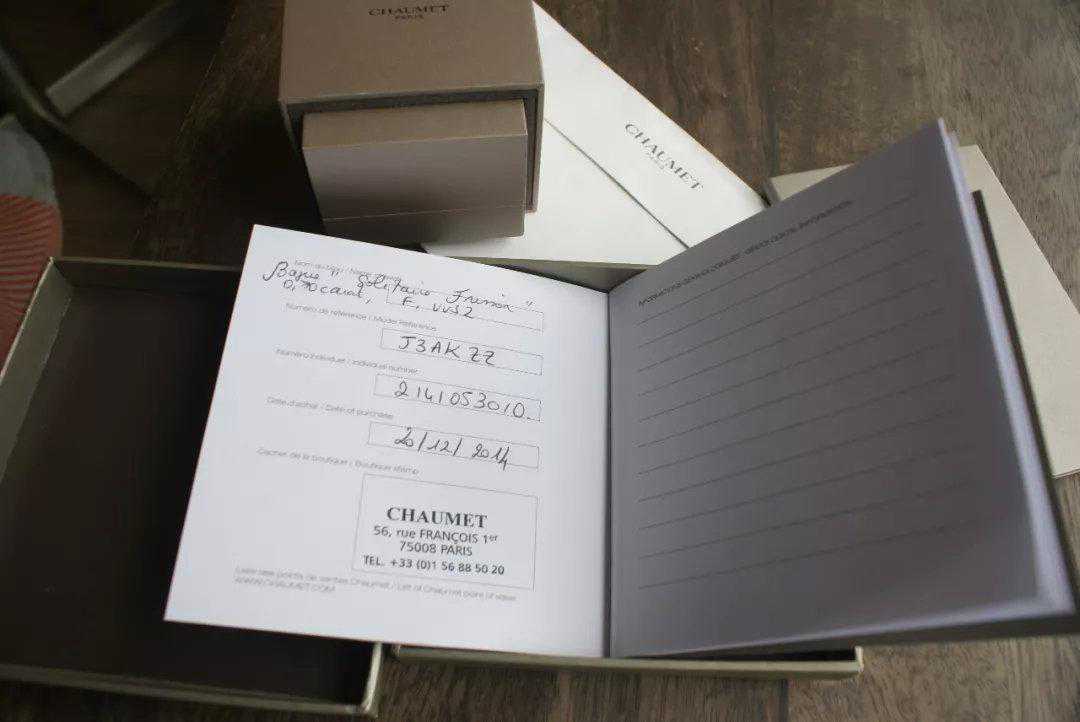 CHAUMET
PARIS
CHAUMET
PARIS
Bague "Solitaire Frisson"
0,70 carat, F, VVS2
Numéro de référence / Model Reference
J3AKZZ
Numéro individuel / Individual number
2141053010.
Date d'achat / Date of purchase
20/12/2014
Cachet de la boutique / Boutique stamp
CHAUMET
56, rue FRANÇOIS 1er
75008 PARIS
TEL. +33 (0)1 56 88 50 20
Liste des points de ventes Chaumet / List of Chaumet point of sales
WWW.CHAUMET.COM